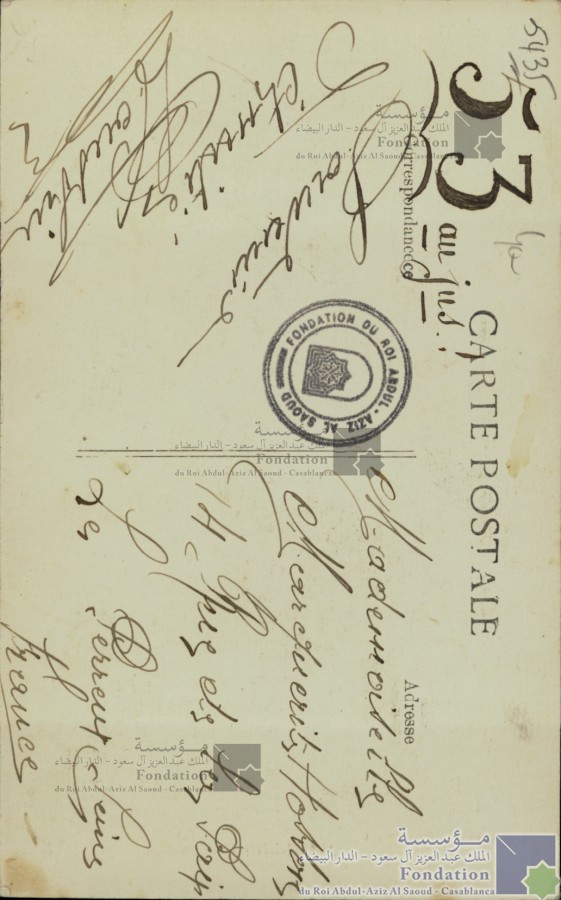 5435
53
au jus !
CARTE POSTALE
Correspondance
Souvenirs
d'amitiés
Adresse
Mademoiselle
Marguerite
14 Rue de
Les
Perreux Seine
France
FONDATION DU ROI ABDUL-AZIZ AL SAOUD
مؤسسة
الملك عبد العزيز آل سعود - الدار البيضاء
Fondation
du Roi Abdul-Aziz Al Saoud - Casablanca
مؤسسة
الملك عبد العزيز آل سعود - الدار البيضاء
Fondation
du Roi Abdul-Aziz Al Saoud - Casablanca
مؤسسة
الملك عبد العزيز آل سعود - الدار البيضاء
Fondation
du Roi Abdul-Aziz Al Saoud - Casablanca
مؤسسة
الملك عبد العزيز آل سعود - الدار البيضاء
Fondation
du Roi Abdul-Aziz Al Saoud - Casablanca